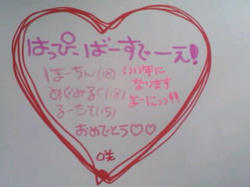 はっぴーばーすでーえ!
ほーちん(18)
めぐみるく(18)
るーたむ(15)
いい年に
なります
よーにっ!!
おめでとう♡♡
咲